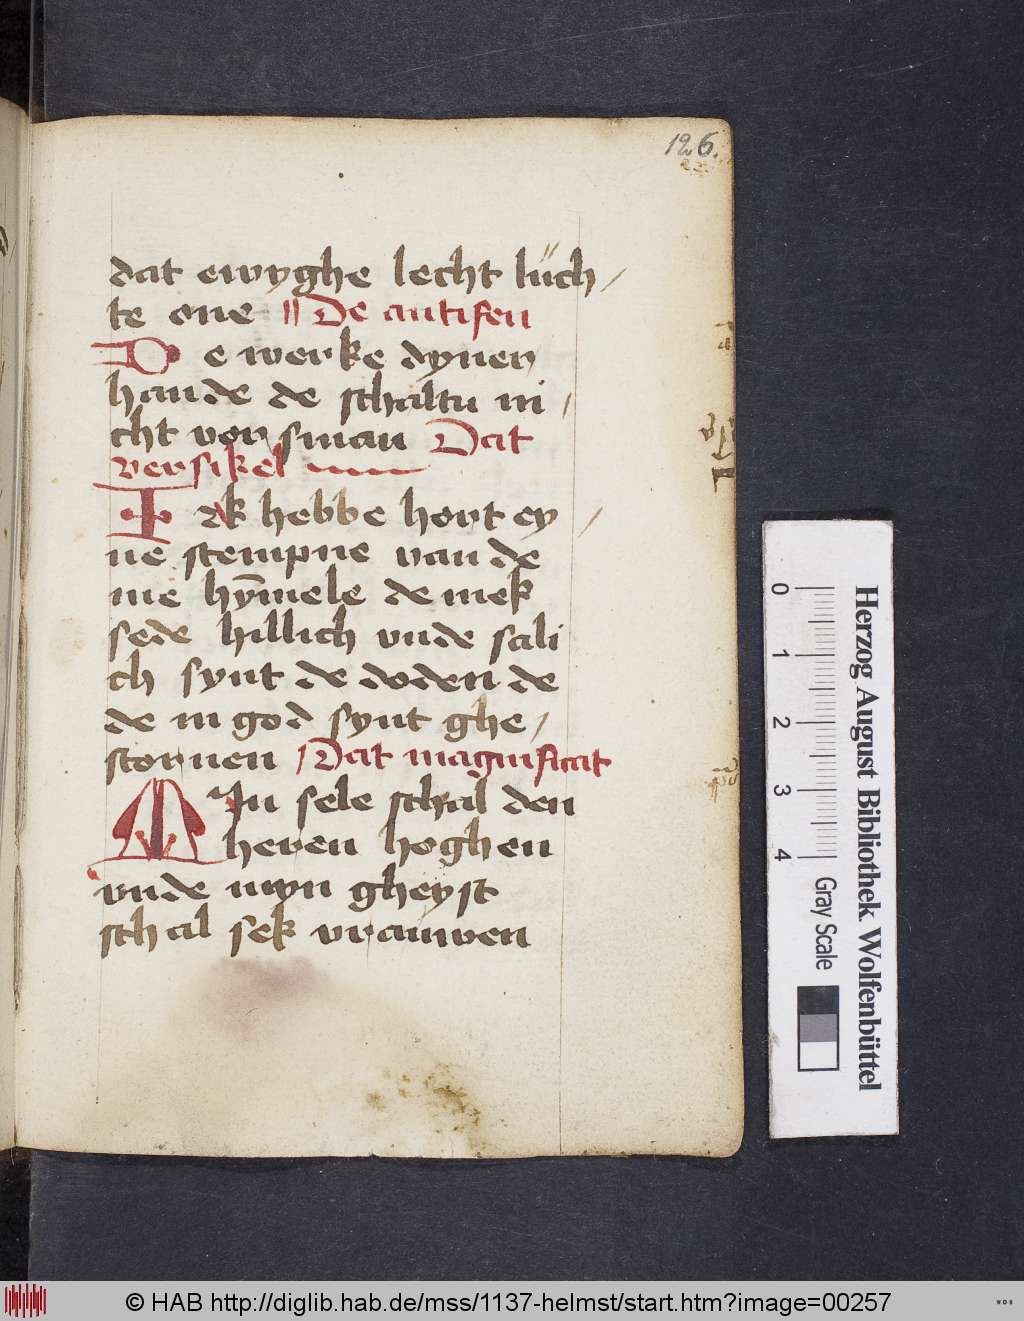 126.
dat ewyghe lecht lüch/
te one De antifen
De werke dyner
hande de schaltu ni/
cht vorsman Dat
versikel
Ik hebbe hort ey/
ne stempne van de
me hȳmele de mek
sede hillich vnde sali
ch synt de doden de
de in god synt ghe/
storuen Dat magnificat
Min sele schal den
heren hoghen
vnde myn gheyst
schal sek vrauwen
Herzog August Bibliothek Wolfenbüttel
0 1 2 3 4 Gray Scale
© HAB http://diglib.hab.de/mss/1137-helmst/start.htm?image=00257